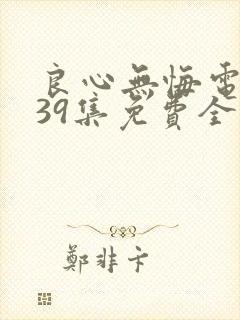 良心無悔電
39集免費全
鄭非卞